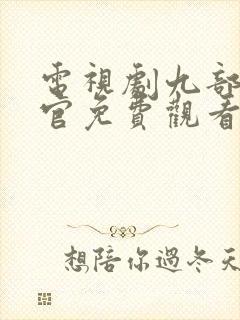 電視劇九部
官免費觀看
想陪你過冬天